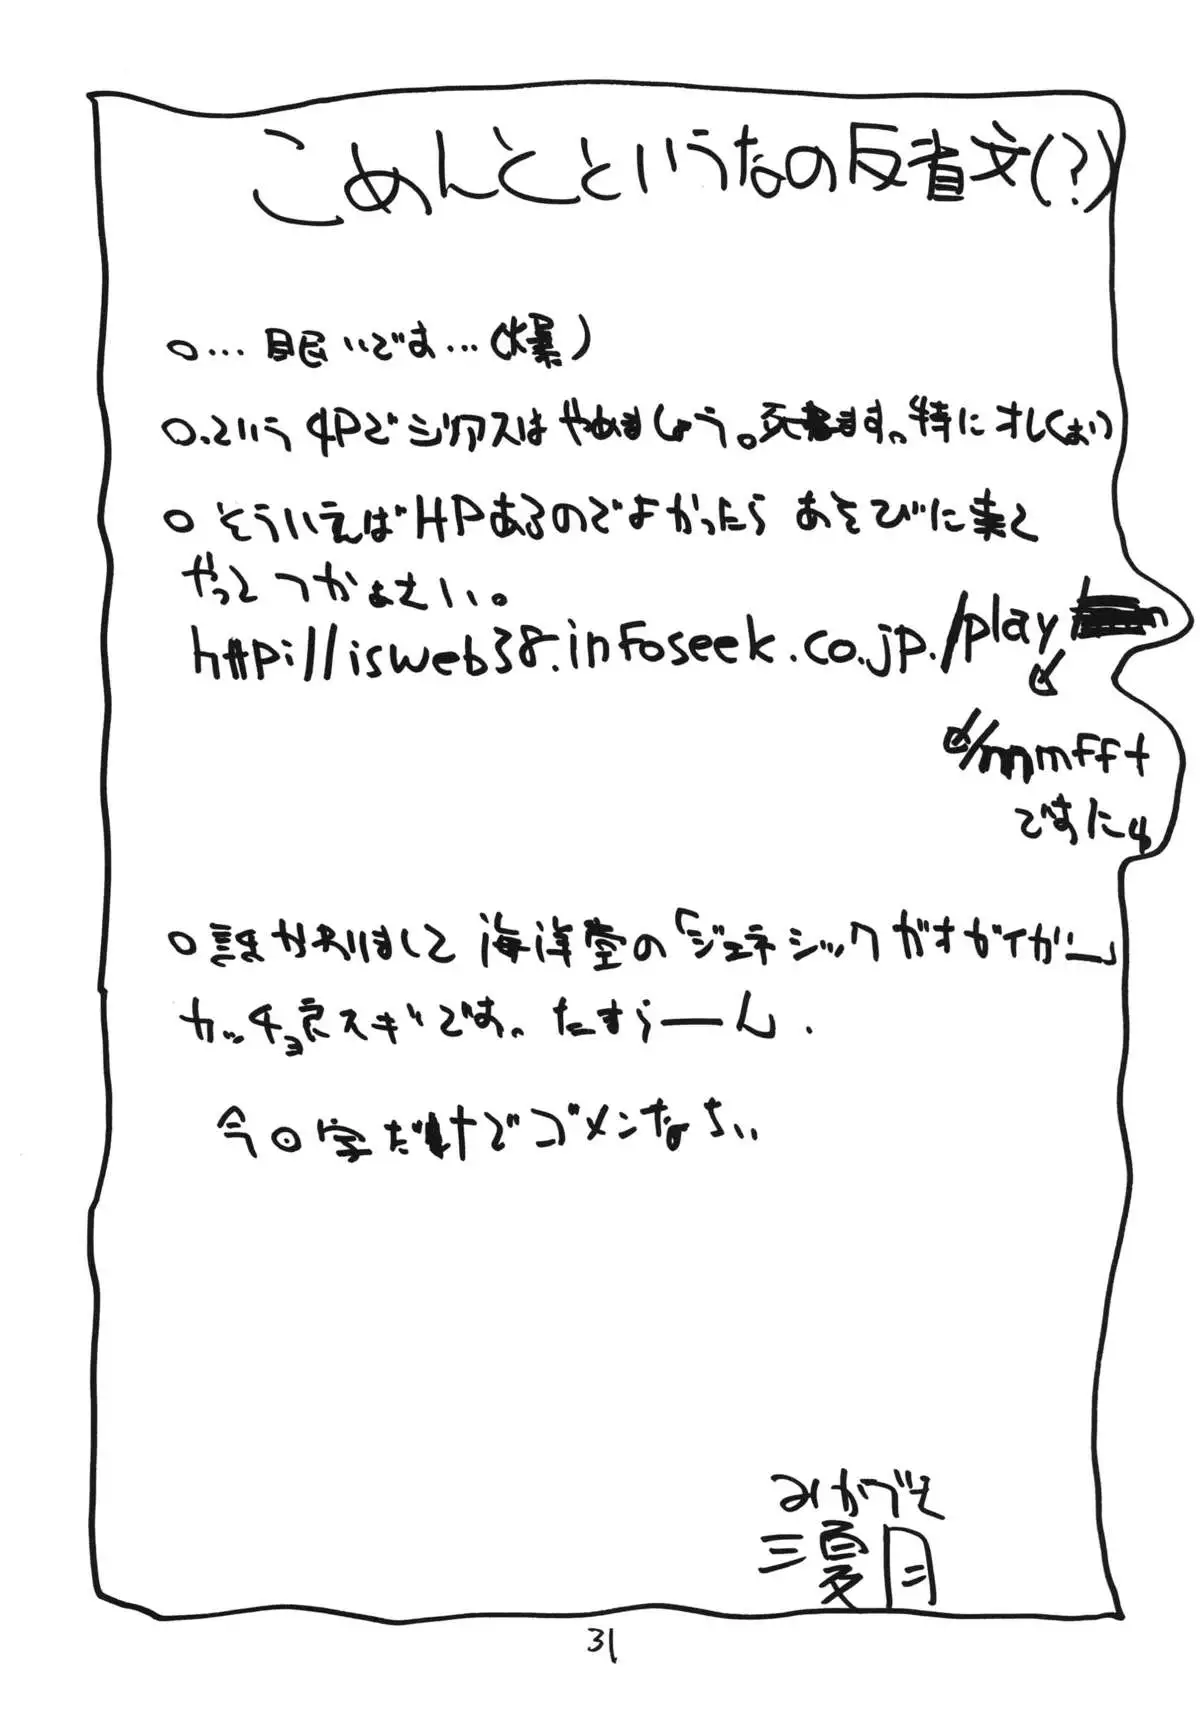 こめんとというなの反省文(?)
○…眠いです…(爆)
○.という4Pでシリアスはやめましょう。死にます。特にオレくぉい
○そういえばHPあるのでよかったらあそびに来て
やってつかぁさい。
http://isweb38.infoseek.co.jp./play
/mmfft
ですにゅ
○誰かおりまして海洋堂の「ジェネシックガオガイガー」
カッチョ良スギです。たすらーん.
今回字だけでゴメンなさい
みかづき
三夏月
31